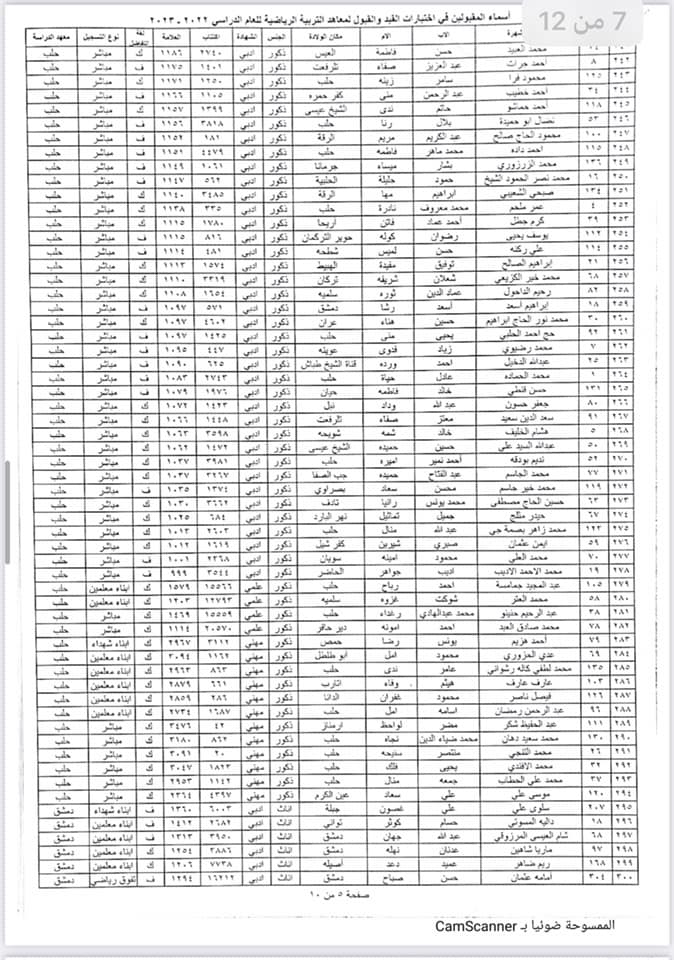 7 من 12
أسماء المقبولين في اختبارات القيد والقبول لمعاهد التربية الرياضية للعام الدراسي ٢٠٢٢ - ٢٠٢٣
الاب الام مكان الولادة الجنس الشهادة اكتتاب العلامة لغة التفاضل نوع التسجيل معهد الدراسة
محمد العبيد حسن فاطمة العيس ذكور ادبي ٢٧٤٠ ١١٨٦ ك مباشر حلب
٢٤٢ ٨ عبد العزيز صفاء تلرفعت ذكور ادبي ١٤٠١ ١١٧٥ ف مباشر حلب
٢٤٣ ١٢٥ محمود فرا سامر زينه حلب ذكور ادبي ١٢٥٠ ١١٧١ ك مباشر حلب
٢٤٤ ٣٤ احمد خطيب عبد الرحمن منى كفر حمره ذكور ادبي ١١٠٥ ١١٦٦ ف مباشر حلب
٢٤٥ ١١٨ أحمد حماشو حاتم ندى الشيخ عيسى ذكور ادبي ١٣٩٩ ١١٥٧ ك مباشر حلب
٢٤٦ ٥٣ نضال ابو حميدة بلال رنا حلب ذكور ادبي ٣٨١٨ ١١٥٦ ف مباشر حلب
٢٤٧ ١٠٠ محمود الحاج صالح عبد الكريم مريم الرقة ذكور ادبي ١٨١ ف مباشر حلب
٢٤٨ ١١٥ احمد داده محمد ماهر فاطمه حلب ذكور ادبي ٤٤٧٩ ١١٥١ ف مباشر حلب
٢٤٩ ١٣٦ محمد الزرزوري بشار ميساء جرمانا ذكور ادبي ١٠٦١ ١١٤٩ ف مباشر حلب
٢٥٠ ١٦ محمد نصر الحمود الشيخ حمود حليلة ذكور ادبي ٥٦٢ ١١٤٧ ف مباشر حلب
٢٥١ ١٣٤ صبحي الشعيبي ابراهيم مها الرقة ذكور ادبي ٣٤٨٥ ١١٤٠ ك مباشر حلب
٢٥٢ ٤ عمر ملحم محمد معروف نادرة حلب ذكور ادبي ٣٣٥ ١١٣٨ ك مباشر حلب
٢٥٣ ٣٩ كرم جطل أحمد عماد فاتن اريحا ذكور ادبي ١٧٨٠ ١١١٥ ك مباشر حلب
٢٥٤ ١١٢ يوسف يحيى رضوان كوله ذكور ادبي ٨١٦ ١١١٥ ف مباشر حلب
٢٥٥ ١١٤ علي ركنه حسن لميس شطحه ذكور ادبي ٤٨١ ١١١٤ ف مباشر حلب
٢٥٦ ٢١ إبراهيم الصالح توفيق مفيدة الهبيط ذكور ادبي ١٥٧٤ ١١١٣ ك مباشر حلب
٢٥٧ ٦٨ محمد خير الكزيعي شعلان شريفه تركان ذكور ادبي ٣٣١٩ ١١١٠ ك مباشر حلب
٢٥٨ ٨٢ رحيم الداحول عماد الدين ثوره سلميه ذكور ادبي ١٦٥٤ ١١٠٨ ك مباشر حلب
٢٥٩ ١٨ ابراهيم أسعد أسعد رشا دمشق ذكور ادبي ٥٧١ ١٠٩٧ ف مباشر حلب
٢٦٠ ٣٠ محمد نور الحاج ابراهيم حسين هناء عران ذكور ادبي ٤٦٠٢ ١٠٩٧ ك مباشر حلب
٢٦١ ٩٢ حج احمد الحلبي يحيى منى حلب ذكور ادبي ١٤٢٥ ١٠٩٧ ف مباشر حلب
٢٦٢ ٧ محمد رضيوي زياد فدوى عويله ذكور ادبي ٤٤٧ ١٠٩٥ ف مباشر حلب
٢٦٣ ٢٥ عبدالله الدخيل احمد ورده قناة الشيخ طباش ذكور ادبي ٦٢٥ ١٠٩٠ ف مباشر حلب
٢٦٤ ١ محمد الحماده عادل حياة حلب ذكور ادبي ٢٧٤٣ ١٠٨٣ ك مباشر حلب
٢٦٥ ١٣١ حسن قنطي خالد فاطمه حيان ذكور ادبي ١٩٧٦ ١٠٧٩ ف مباشر حلب
٢٦٦ ٨٠ جعفر حسون عبد الله وداد نبل ذكور ادبي ١٤٢٣ ١٠٧٢ ك مباشر حلب
٢٦٧ ٩١ سعد الدين سعيد معتز صفاء تلرفعت ذكور ادبي ١٤٤٨ ١٠٦٦ ك مباشر حلب
٢٦٨ ٥ هشام الخليف خالد شمه شويحه ذكور ادبي ٣٥٩٨ ١٠٦٣ ك مباشر حلب
٢٦٩ ٥٠ عبدالله السيد علي حسين حميده الشيخ عيسى ذكور ادبي ١٤٧٢ ١٠٦٢ ك مباشر حلب
٢٧٠ ٥٢ نديم بودقه أحمد نمير اميره حلب ذكور ادبي ٣٩٨١ ١٠٣٧ ك مباشر حلب
٢٧١ ٧٧ محمد الجاسم عبد الفتاح حميده جب الصفا ذكور ادبي ٣٢٦٧ ١٠٣٧ ك مباشر حلب
٢٧٢ ١١٩ محمد خير جاسم محسن سعاد بصراوي ذكور ادبي ١٣٧٤ ١٠٣٥ ف مباشر حلب
٢٧٣ ٦٣ حسين الحاج مصطفى محمد يونس رانيا تادف ذكور ادبي ٣٦٦٢ ١٠٣٠ ك مباشر حلب
٢٧٤ ٦٧ حيدر مثلج جميل تماثيل نهر البارد ذكور ادبي ٦٨٤ ١٠٢٥ ك مباشر حلب
٢٧٥ ١٢٣ محمد زاهر بصمة جي عبد الله منال حلب ذكور ادبي ٢٦٠٣ ١٠١٣ ك مباشر حلب
٢٧٦ ٥٩ ايمن عثمان صبري شيرين كفر شيل ذكور ادبي ١٦١٩ ١٠١٢ ك مباشر حلب
٢٧٧ ٧٠ محمد العلي محمود امينه سويان ذكور ادبي ٢٣٦٨ ١٠٠١ ف مباشر حلب
٢٧٨ ١٩ محمد الاحمد الاديب اديب جواهر الحاضر ذكور ادبي ٣٥٤٤ ٩٩٩ ف مباشر حلب
٢٧٩ ١٠٥ عبد المجيد جمامسة احمد رباح حلب ذكور علمي ١٥٥٦٦ ١٥٧٩ ك ابناء معلمين حلب
٢٨٠ ٥٨ محمد العتر شوكت غزوه سلميه ذكور علمي ١٢٧٩٣ ١٢٠٣ ك ابناء معلمين حلب
٢٨١ ٣٨ عبد الرحيم حنينو محمد عبدالهادي رغداء حلب ذكور علمي ١٥٥٥٩ ١٤٦٩ ك مباشر حلب
٢٨٢ ٧٨ محمد صادق العبد احمد امونه دير حافر ذكور علمي ٢٠٥٧٠ ١١١٤ ك مباشر حلب
٢٨٣ ٧٩ أحمد هزيم يونس رضا حمص ذكور مهني ٣١١٢ ٢٩٦٧ ك ابناء شهداء حلب
٢٨٤ ٦٩ عدي الحزوري محمود امل ابو طلطل ذكور مهني ١١٦٢ ٣٠٩٤ ك ابناء معلمين حلب
٢٨٥ ١٣٥ محمد لطفي كاله رشواني عامر ندى حلب ذكور مهني ٨٦٣ ٢٩٦٣ ك ابناء معلمين حلب
٢٨٦ ١٠٣ عارف عارف هيثم وفاء اتارب ذكور مهني ٦٦١ ٢٨٧٩ ك ابناء معلمين حلب
٢٨٧ ١٢٦ فيصل ناصر محمود غفران الدانا ذكور مهني ٢٨٦ ٢٨٥٩ ك ابناء معلمين حلب
٢٨٨ ٩٦ عبد الرحمن رمضان اسامه امل حلب ذكور مهني ١٦٨٧ ٢٧٣٤ ك ابناء معلمين حلب
٢٨٩ ١١١ عبد الحفيظ شكر مضر لواحظ ارمناز ذكور مهني ٤٢ ٣٤٧٦ ك مباشر حلب
٢٩٠ ١٣٠ محمد سعيد دهان محمد ضياء الدين نجاه حلب ذكور مهني ٨٦٢ ٣١٨٠ ك مباشر حلب
٢٩١ ٢٦ محمد التنجي منتصر سنيحه حلب ذكور مهني ٢٠ ٣٠٩١ ك مباشر حلب
٢٩٢ ٣٢ محمد الافندي يحيى فلك حلب ذكور مهني ١٨٢٣ ٣٠٤٧ ك مباشر حلب
٢٩٣ ٣٧ محمد علي الحطاب جمعه منال حلب ذكور مهني ١١٤٢ ٢٩٥٣ ك مباشر حلب
٢٩٤ ١٢٠ موسى علي علي سعاد عين الكرم ذكور مهني ٤٣٩٧ ٢٣٦٤ ك مباشر حلب
٢٩٥ ٢٠٧ سلوى علي علي غصون جبلة اناث ادبي ٦٠٠٣ ١٣٦٠ ف ابناء شهداء دمشق
٢٩٦ ١٨ داليه المسوتي حسام كوثر تواني اناث ادبي ٢٦٨٢ ١٤١٢ ف ابناء معلمين دمشق
٢٩٧ ٦٨ شام العيسى المرزوقي عبد الله جهان دمشق اناث ادبي ٣٩٥٠ ١٣١٣ ف ابناء معلمين دمشق
٢٩٨ ٩٧ ماريا شاهين عدنان نهله دمشق اناث ادبي ٣٨٨٦ ١٢٥٤ ك ابناء معلمين دمشق
٢٩٩ ١٦٨ ريم ضاهر عميد دعد أصيله اناث ادبي ٧٧٣٨ ١٢٠٦ ك ابناء معلمين دمشق
٣٠٠ ٣٠٤ أمامه عثمان حسن صباح دمشق اناث ادبي ١٦٢١٢ ١٢٩٤ ف تفوق رياضي دمشق
صفحة ٥ من ١٠
الممسوحة ضوئيا بـ CamScanner